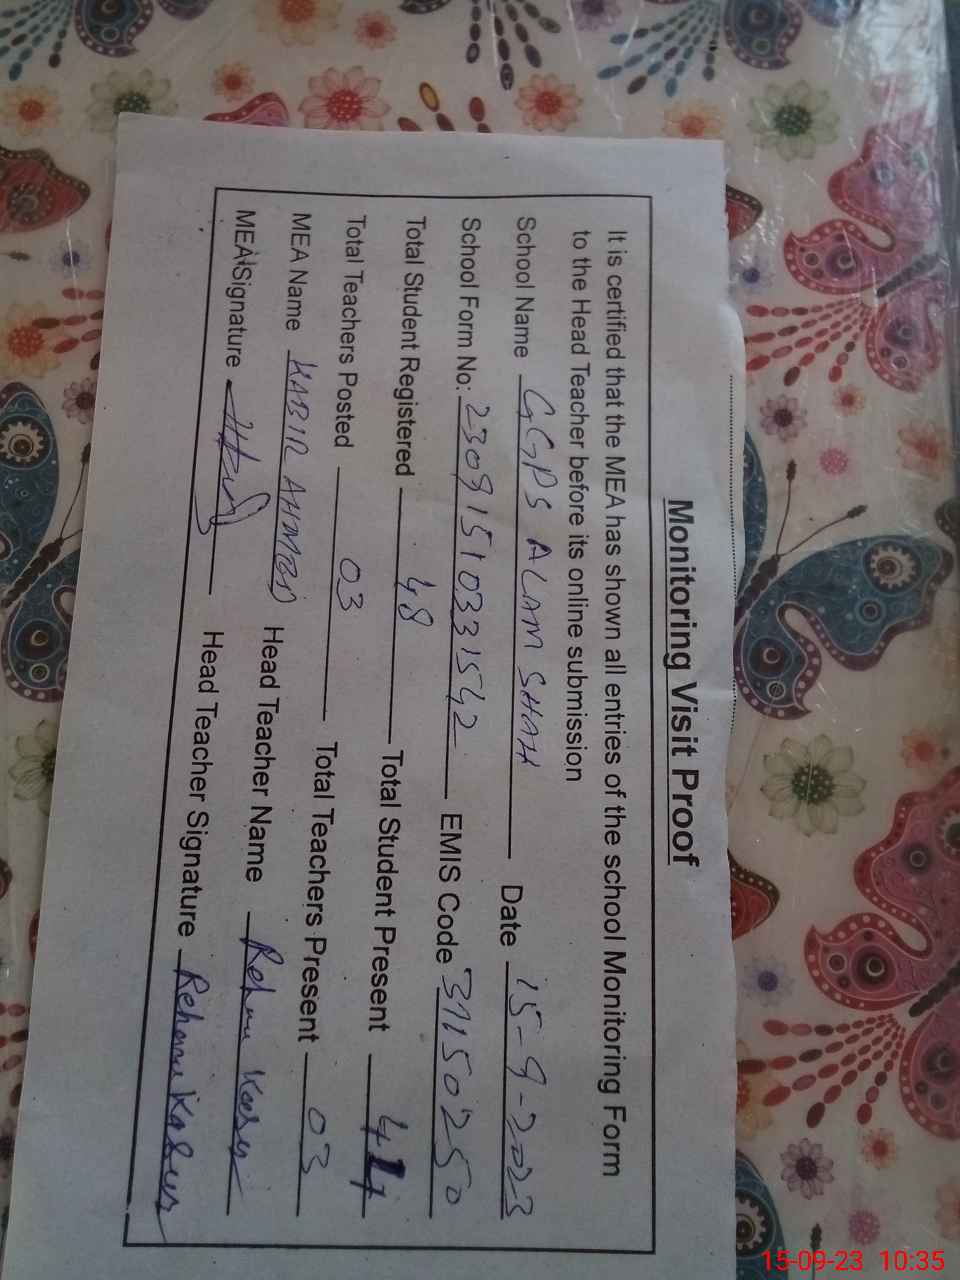 Monitoring Visit Proof
It is certified that the MEA has shown all entries of the school Monitoring Form
to the Head Teacher before its online submission
School Name GGPS ALAM SHAH Date 15-9-2023
School Form No: 23091510331542 EMIS Code 31150250
Total Student Registered 48 Total Student Present
Total Teachers Posted 03 Total Teachers Present 03
MEA Name KABIR AHMED Head Teacher Name
MEA Signature Head Teacher Signature
15-09-23 10:35